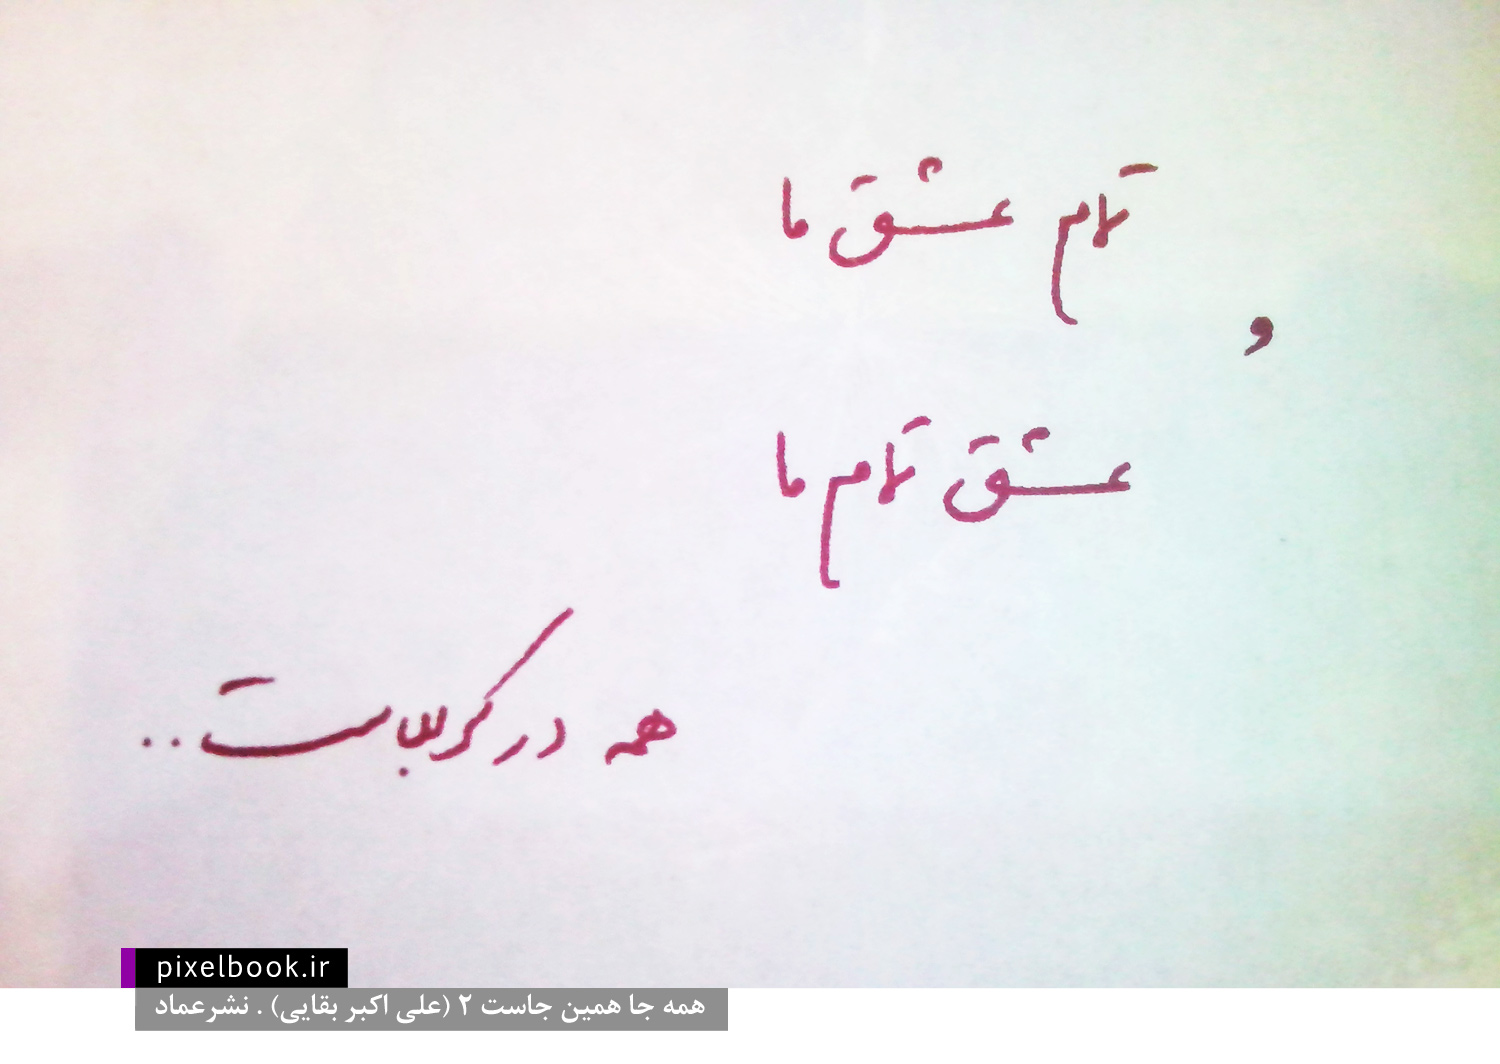 تمام عشق ما
و
عشق تمام ما
همه در کربلاست..
pixelbook.ir
همه جا همین جاست ۲ (علی اکبر بقایی) . نشرعماد